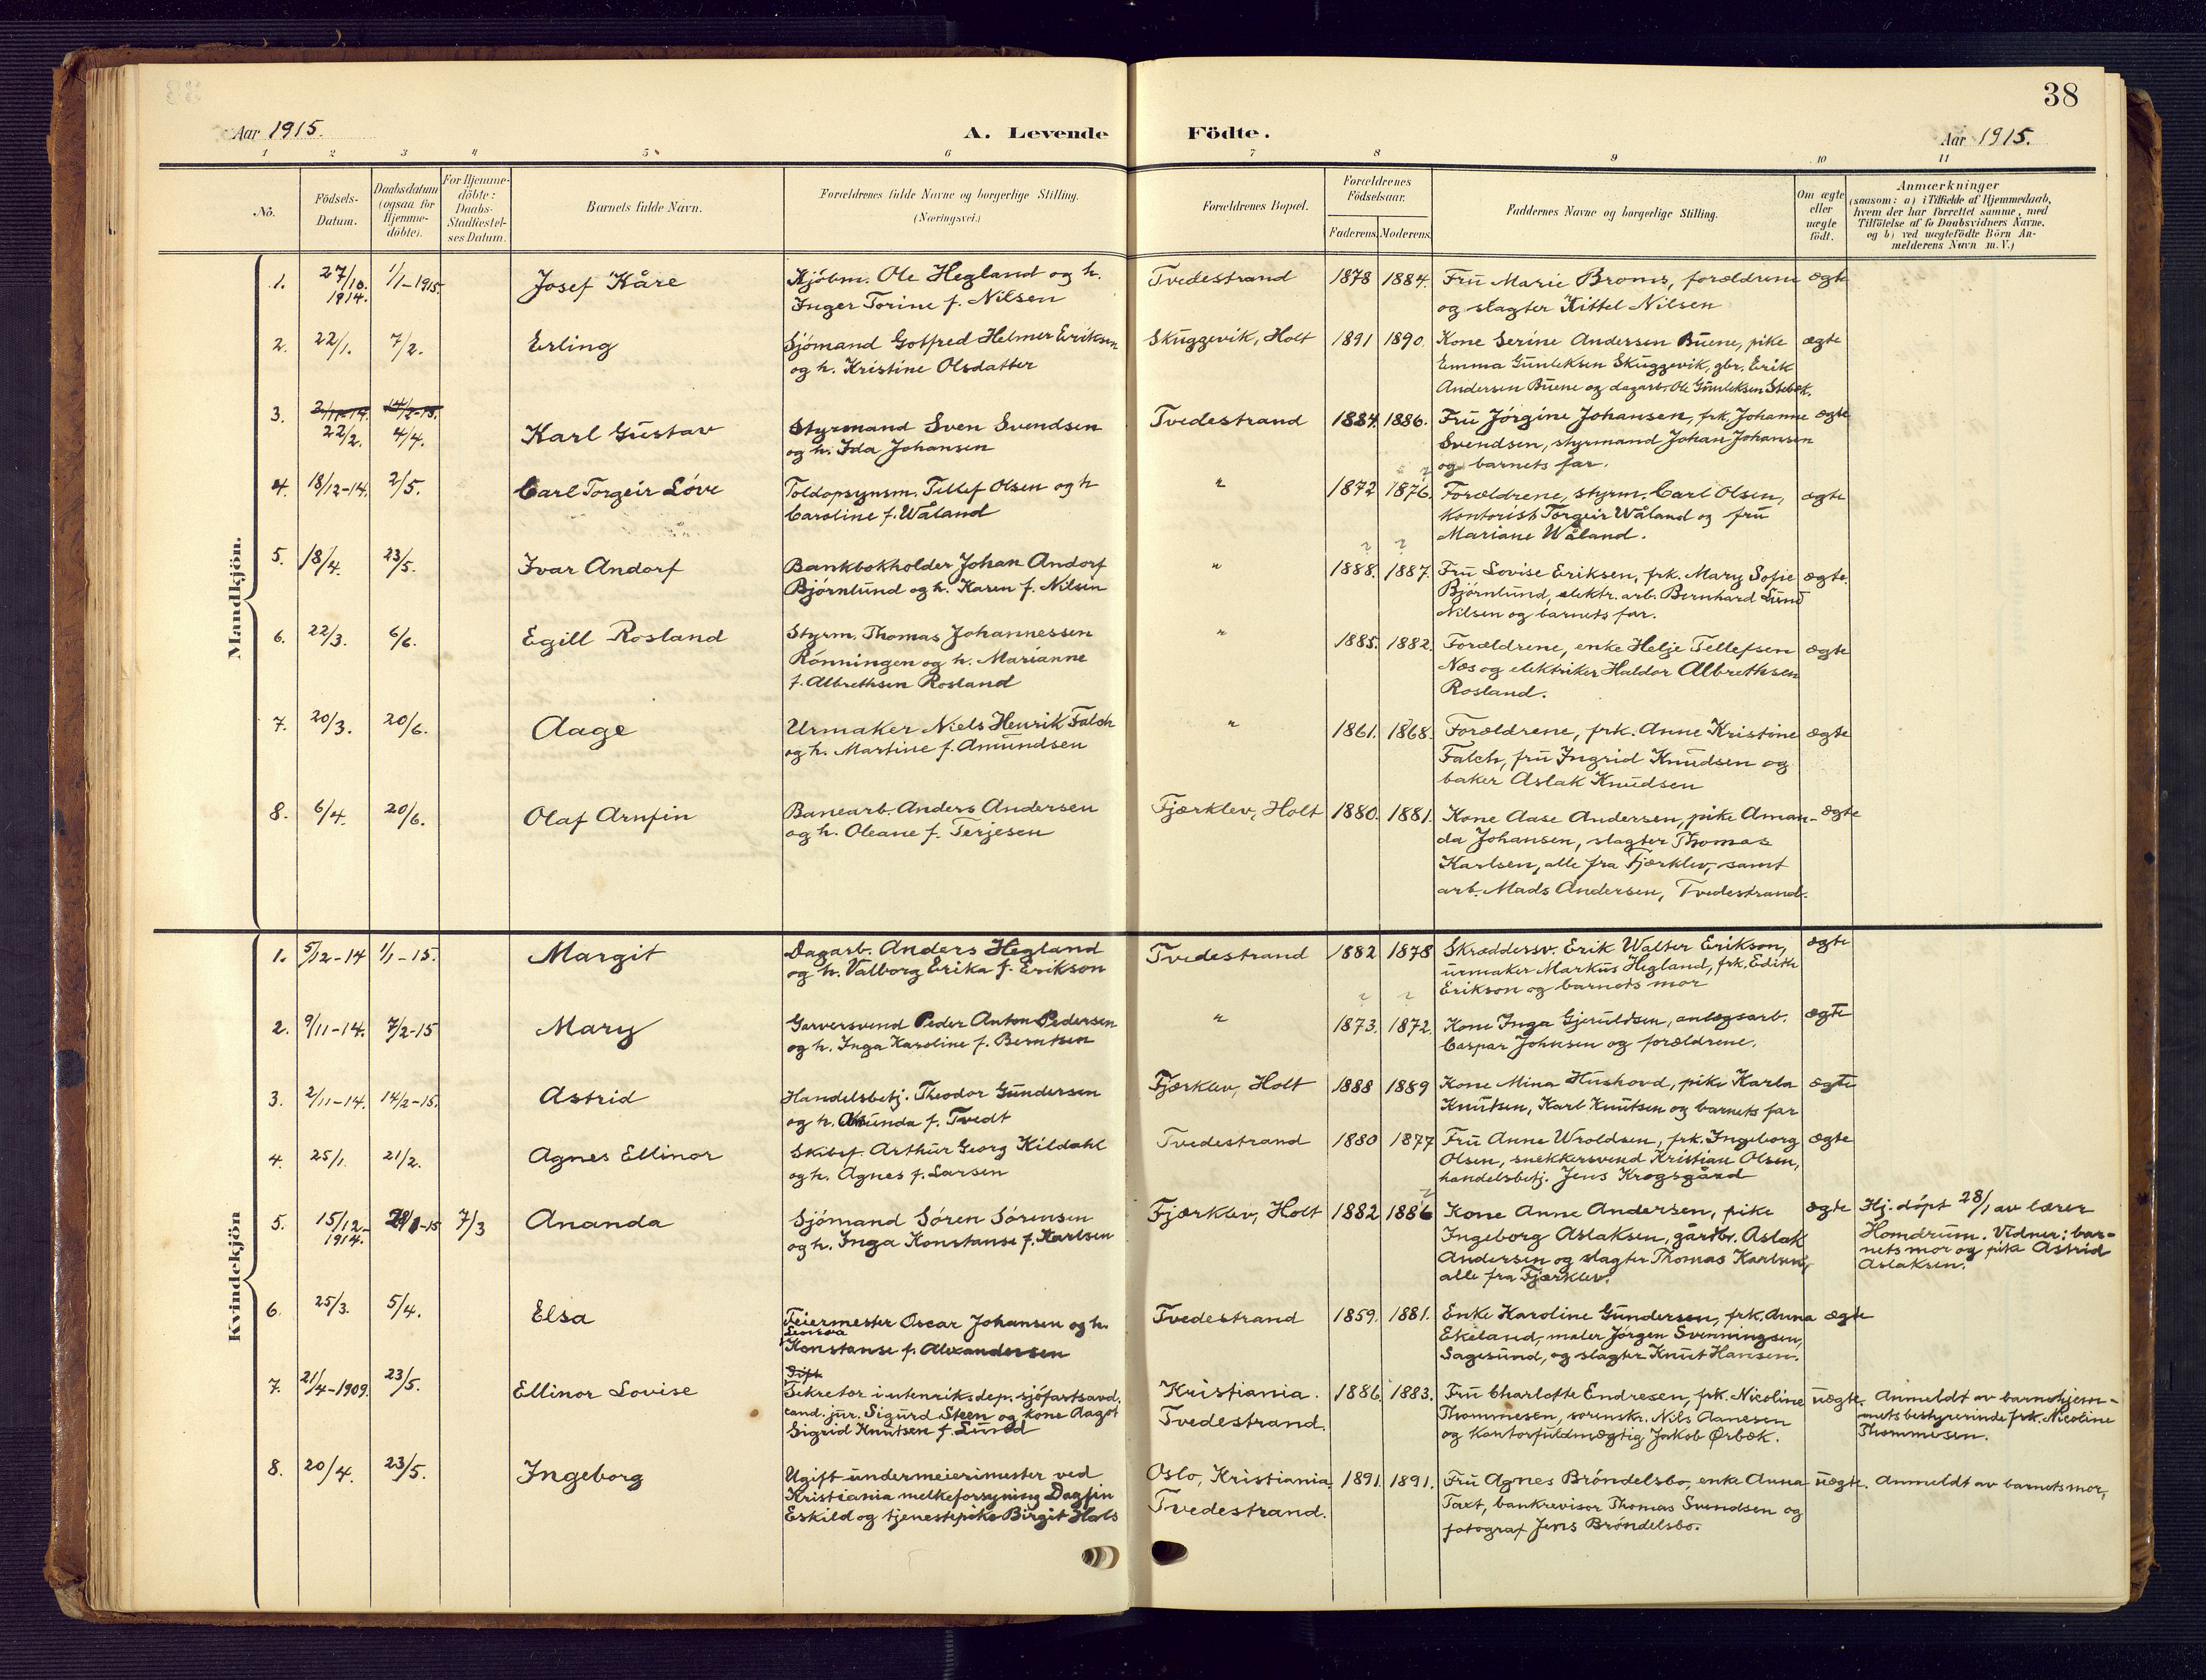 38
Aar 1915.
A. Levende
Födte.
Aar 1915.
1 2 3 4 5 6 7 8 9 10 11
No.
Födsels-
Datum.
Daabsdatum
(ogsaa for
Hjemme-
döbte).
For Hjemme-
döbte:
Daabs-
Stadfæstel-
ses Datum.
Barnets fulde Navn.
Forældrenes fulde Navne og borgerlige Stilling.
(Næringsvei.)
Forældrenes Bopæl.
Forældrenes
Födselsaar.
Faderens. Moderens.
Faddernes Navne og borgerlige Stilling.
Om ægte
eller
uægte
födt.
Anmærkninger
(saasom: a) i Tilfælde af Hjemmedaab,
hvem der har forrettet samme, med
Tilföielse af to Daabsvidners Navne,
og b) ved uægtefödte Börn An-
melderens Navn m. V.)
Mandkjön.
1. 27/10. 1914. 1/1-1915. Josef Kåre
Kjöbm. Ole Hegland og h.
Inger Torine f. Nilsen
Tvedestrand 1878 1884.
Fru Marie Broms, forældrene
og slagter Kittel Nilsen
ægte
2. 22/1. 7/2. Erling
Sjömand Gotfred Helmer Eriksen
og h. Kristine Olsdatter
Skuggevik, Holt 1891 1890.
Kone Serine Andersen Buene, pike
Emma Gunleksen Skuggevik, gbr. Erik
Andersen Buene og dagarb. Ole Gunleksen Stebek.
ægte
3. 2/11-14. 14/2-15.
22/2. 4/4. Karl Gustav
Styrmand Sven Svendsen
og h. Ida Johansen
Tvedestrand 1884. 1886.
Fru Jörgine Johansen, frk. Johanne
Svendsen, styrmand Johan Johansen
og barnets far.
ægte
4. 18/12-14. 2/5. Carl Torgeir Löve
Toldopsynsm. Tellef Olsen og h
Caroline f. Wåland
" 1872 1876.
Forældrene, styrm. Carl Olsen,
Kontorist Torgeir Wåland og fru
Mariane Wåland.
ægte
5. 18/4. 23/5. Ivar Andorf
Bankbokholder Johan Andorf
Björnlund og h. Karen f. Nilsen
" 1888. 1887.
Fru Lovise Eriksen, frk. Mary Sofie
Björnlund, elektr. arb. Bernhard Lund
Nilsen og barnets far.
ægte.
6. 22/3. 6/6. Egill Rosland
Styrm. Thomas Johannessen
Rönningen og h. Marianne
f. Albrethsen Rosland
" 1885. 1882.
Forældrene, enke Helje Tellefsen
Næs og elektriker Haldor Albrethsen
Rosland.
ægte
7. 20/3. 20/6. Aage
Urmaker Niels Henrik Falch
og h. Martine f. Amundsen
" 1861. 1868.
Forældrene, frk. Anne Kristine
Falch, fru Ingrid Knudsen og
baker Aslak Knudsen
ægte
8. 6/4. 20/6. Olaf Arnfin
Banearb. Anders Andersen
og h. Oleane f. Terjesen
Fjærklev, Holt 1880. 1881.
Kone Aase Andersen, pike Aman-
da Johansen, slagter Thomas
Karlsen, alle fra Fjærklev, samt
arb. Mads Andersen, Tvedestrand.
ægte
Kvindekjön
1. 5/12-14 1/1-15. Margit
Dagarb. Anders Hegland
og h. Valborg Erika f. Erikson
Tvedestrand 1882 1878
Skræddersv. Erik Walter Erikson,
urmaker Markus Hegland, frk. Edith
Erikson og barnets mor
ægte
2. 9/11-14. 7/2-15 Mary
Garversvend Peder Anton Pedersen
og h. Inga Karoline f. Berntsen
" 1873. 1872.
Kone Inga Gjeruldsen, anlægsarb.
Caspar Johnsen og forældrene.
ægte
3. 2/11-14. 14/2-15. Astrid
Handelsbetj. Theodor Gundersen
og h. f. Tvedt
Fjærklev, Holt 1888 1889
Kone Mina Hushovd, pike Karla
Knutsen, Karl Knutsen og barnets far
ægte
4. 25/1. 21/2. Agnes Ellinor
Skibsf. Arthur Georg Kildahl
og h. Agnes f. Larsen
Tvedestrand 1880 1877
Fru Anne Wroldsen, frk. Ingeborg
Olsen, snekkersvend Kristian Olsen,
handelsbetj. Jens Krogsgård
ægte
5. 15/12-1914. 28/1-15 7/3 Ananda
Sjömand Sören Sörensen
og h. Inga Konstanse f. Karlsen
Fjærklev, Holt 1882 1886
Kone Anne Andersen, pike
Ingeborg Aslaksen, gårdbr. Aslak
Andersen og slagter Thomas Karlsen,
alle fra Fjærklev.
ægte
Hj. döpt 28/1 av lærer
Homdrum. Vidner: bar-
nets mor og pike Astrid
Aslaksen.
6. 25/3. 5/4. Elsa
Feiermester Oscar Johansen og h.
Konstanse f. Alexandersen
Tvedestrand 1859. 1881.
Enke Karoline Gundersen, frk. Anna
Ekeland, maler Jörgen Svenningsen,
Sagesund, og slagter Knut Hansen.
ægte
7. 21/4-1909. 23/5. Ellinor Lovise
Gift
Sekretær i utenriks.dep. sjöfartsavd.
cand. jur. Sigurd Steen og kone Aagot
Sigrid Knutsen f. Lund
Kristiania.
Tvedestrand.
1886. 1883.
Fru Charlotte Endresen, frk. Nicoline
Thommesen, sorenskr. Nils Aanesen
og kontorfuldmægtig Jakob Ørbæk.
uægte.
Anmeldt av barnehjem-
mets bestyrerinde frk. Nicoline
Thommesen.
8. 20/4. 23/5. Ingeborg
Ugift undermeierimester ved
Kristiania melkeforsyning Dagfin
Eskild og tjenestepike Birgit Hals
Oslo, Kristiania.
Tvedestrand.
1891. 1891.
Fru Agnes Bröndelsbo, enke Anna
Taxt, bankrevisor Thomas Svendsen og
fotograf Jens Bröndelsbo.
uægte.
Anmeldt av barnets mor,